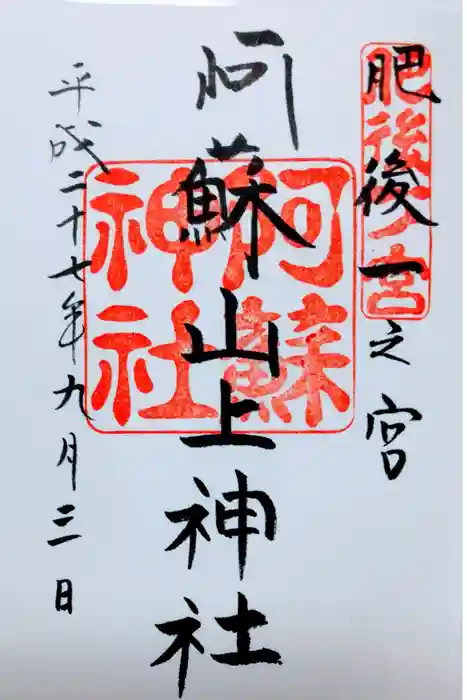 肥後一之宮
肥後一ノ宮
阿蘇山上神社
阿蘇神社
平成二十七年九月三日